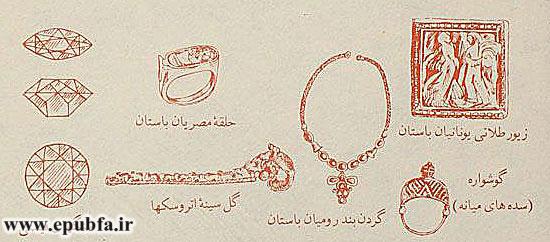 زیور طلائی یونانیان باستان
حلقهٔ مصریان باستان
گوشواره
(سده های میانه)
گردن بند رومیان باستان
گل سینهٔ اتروسکها
www.epubfa.ir